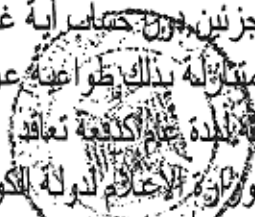 جزئين دون حساب أية
متنازلة بذلك طواعية
لمدة عام كدفعة تعاقد
وزارة الإعلام لدولة